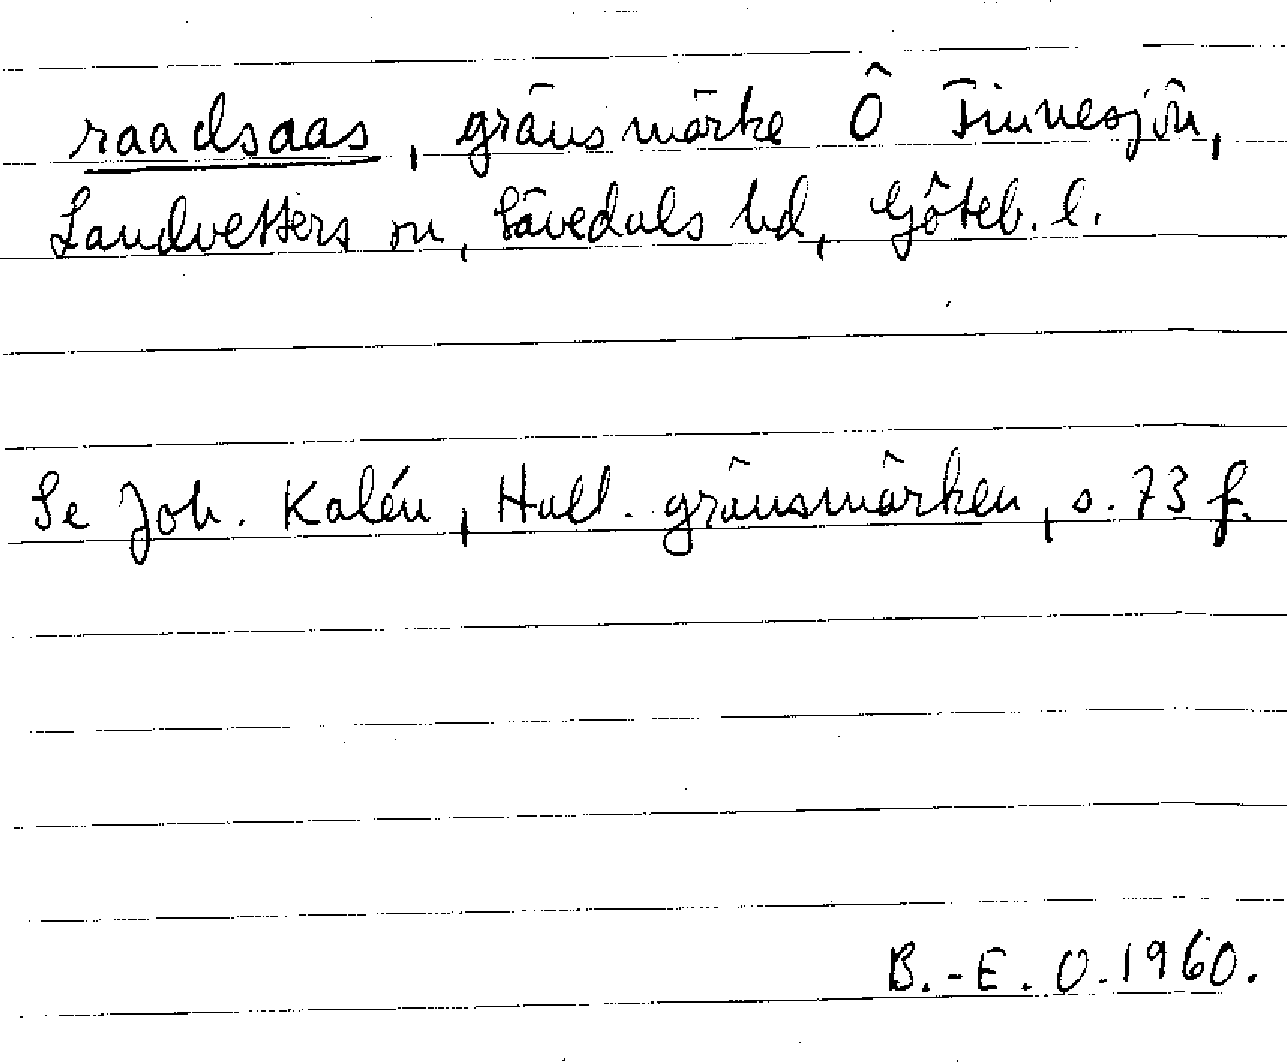 raadsaas, gränsmärke Ö Finnesjön,
Landvetters sn, Sävedals hd, Göteb. l.
Se Joh. Kalén, Hall. gränsmärken, s. 73 f.
B.-E. O. 1960.